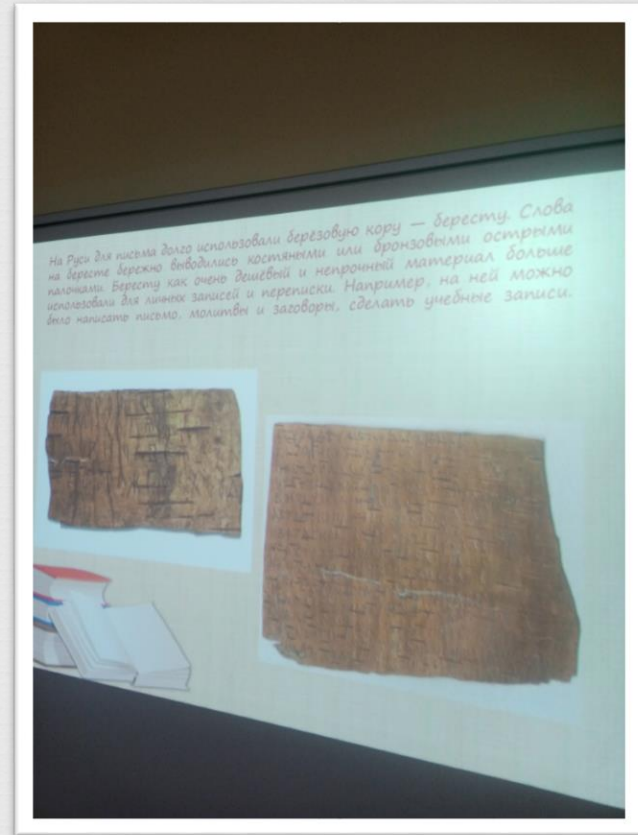 На Руси для письма долго использовали берёзовую кору — бересту. Слова
на бересте бережно выводились костяными или бронзовыми острыми
палочками. Бересту как очень дешёвый и непрочный материал больше
использовали для личных записей и переписки. Например, на ней можно
было написать письмо, молитвы и заговоры, сделать учебные записи.